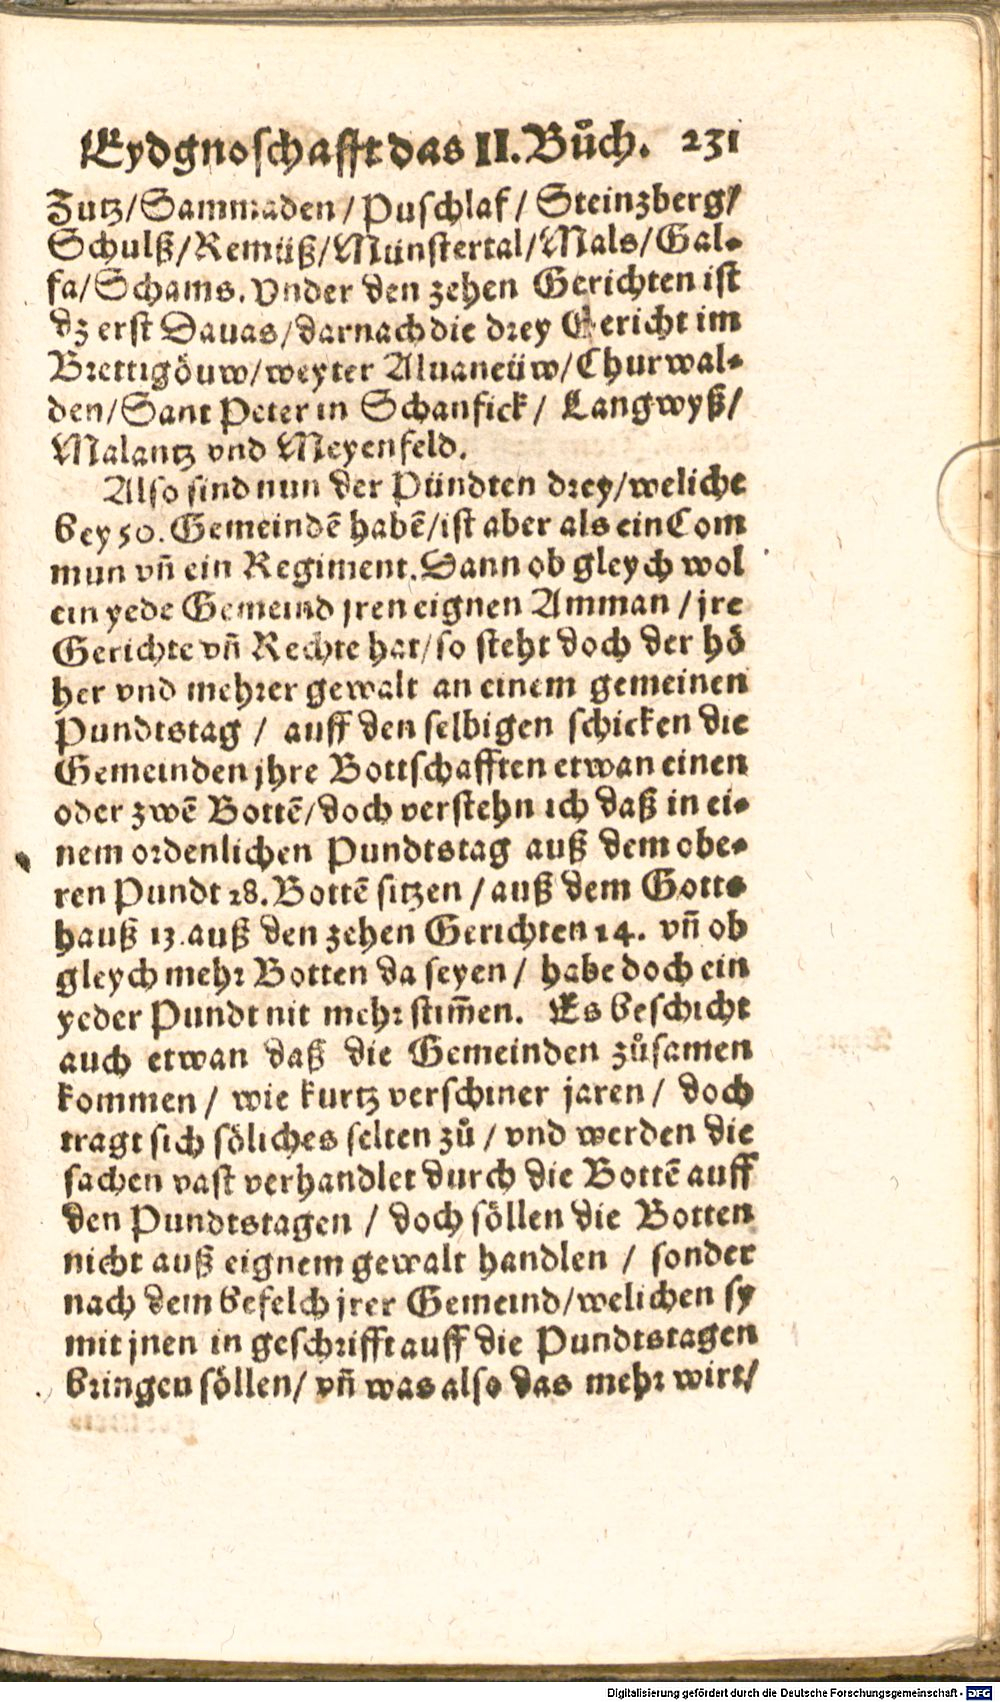 Eydgnoschafft das II. Bůch. 231
Zutz/Sammaden/Puschlaf/Steinzberg/
Schulß/Remüß/Münstertal/Mals/Gal-
fa/Schams. Vnder den zehen Gerichten ist
dz erst Dauas/darnach die drey Gericht im
Brettigöuw/weyter Aluaneüw/Churwal-
den/Sant Peter in Schanfick/Langwyß/
Malantz vnd Meyenfeld.
Also sind nun der Pündten drey/weliche
bey 50. Gemeindẽ habẽ/ist aber als ein Com
mun vñ ein Regiment. Dann ob gleych wol
ein yede Gemeind jren eignen Amman/jre
Gerichte vñ Rechte hat/so steht doch der hö
her vnd mehrer gewalt an einem gemeinen
Pundtstag/auff den selbigen schicken die
Gemeinden jhre Bottschafften etwan einen
oder zwẽ Bottẽ/doch verstehn ich daß in ei-
nem ordenlichen Pundtstag auß dem obe-
ren Pundt 28. Bottẽ sitzen/auß dem Gotts
hauß 13. auß den zehen Gerichten 14. vñ ob
gleych mehr Botten da seyen/habe doch ein
yeder Pundt nit mehr stim̃en. Es beschicht
auch etwan daß die Gemeinden zůsamen
kommen/wie kurtz verschiner jaren/doch
tragt sich söliches selten zů/vnd werden die
sachen vast verhandlet durch die Bottẽ auff
den Pundtstagen/doch söllen die Botten
nicht auß eignem gewalt handlen/sonder
nach dem befelch jrer Gemeind/welichen sy
mit jnen in geschrifft auff die Pundtstagen
bringen söllen/vñ was also das mehr wirt/
Digitalisierung gefördert durch die Deutsche Forschungsgemeinschaft - DFG